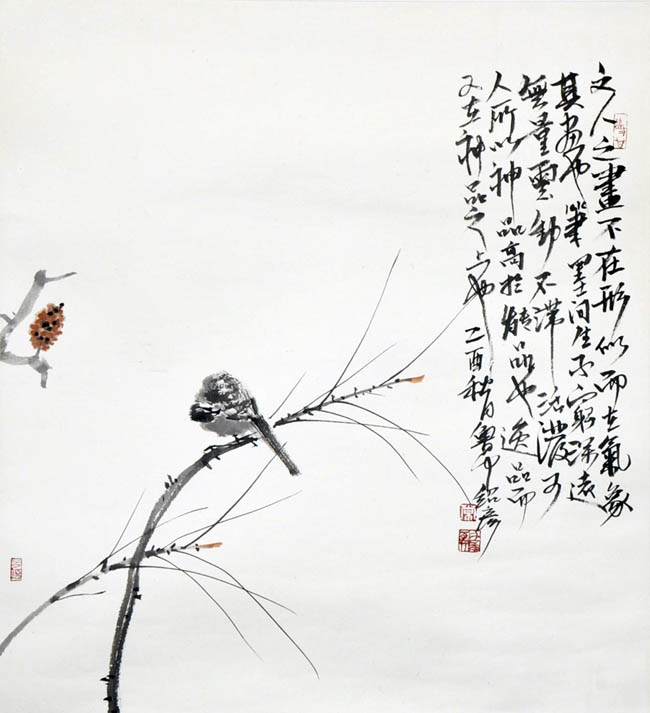 文人之畫不在形似而在氣象
其畫也筆墨间生不窮深遠
無量靈動不滞活潑可
人所以神品高於能品也逸品而
又在神品之上也乙酉秋月魯中紹彦